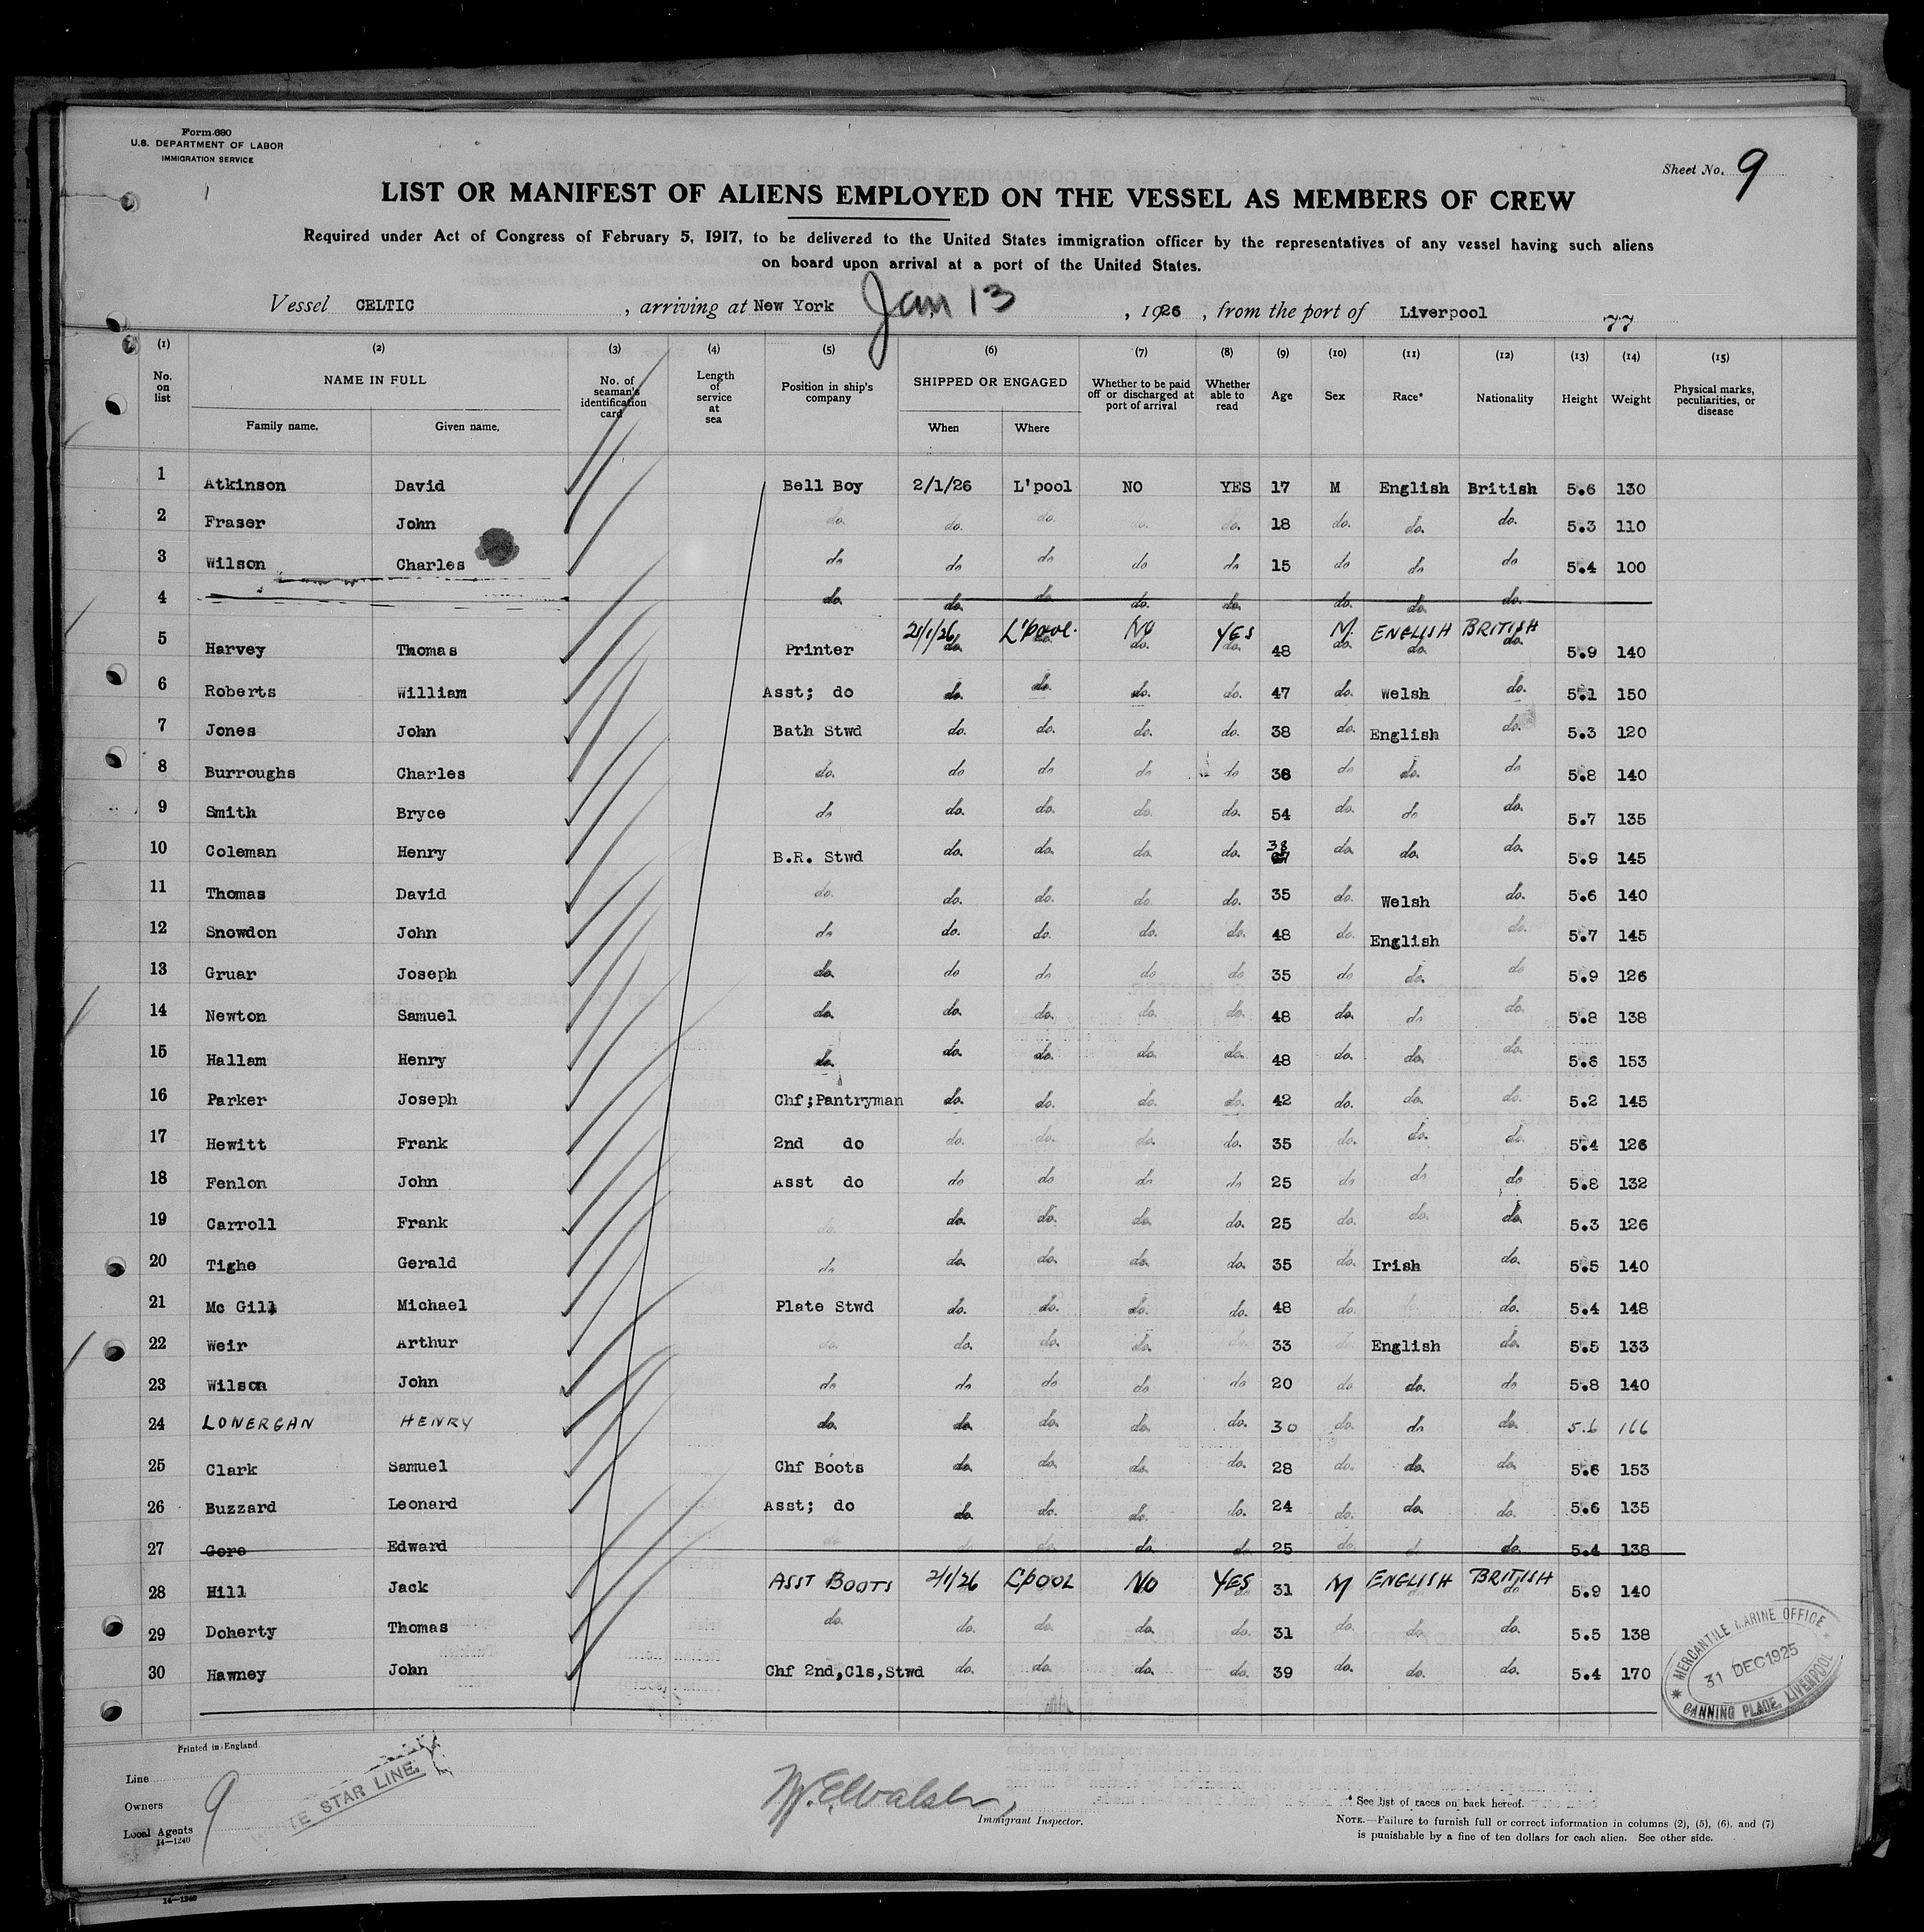 Form 680
U.S. DEPARTMENT OF LABOR
IMMIGRATION SERVICE
Sheet No. 9
LIST OR MANIFEST OF ALIENS EMPLOYED ON THE VESSEL AS MEMBERS OF CREW
Required under Act of Congress of February 5, 1917, to be delivered to the United States immigration officer by the representatives of any vessel having such aliens
on board upon arrival at a port of the United States.
Vessel CELTIC , arriving at New York Jan 13 , 1926 , from the port of Liverpool 77
(1) (2) (3) (4) (5) (6) (7) (8) (9) (10) (11) (12) (13) (14) (15)
No. on list NAME IN FULL Family name. Given name. No. of seaman's identification card Length of service at sea Position in ship's company SHIPPED OR ENGAGED When Where Whether to be paid off or discharged at port of arrival Whether able to read Age Sex Race* Nationality Height Weight Physical marks, peculiarities, or disease
1 Atkinson David Bell Boy 2/1/26 L'pool NO YES 17 M English British 5.6 130
2 Fraser John do. do. do. do. do. 18 do. do. do. 5.3 110
3 Wilson Charles do do do do do 15 do do do 5.4 100
4 do. do. do. do. do. do. do. do.
5 Harvey Thomas Printer 2/1/26 do. L'pool. do. NO do. YES do. 48 M. do. ENGLISH do. BRITISH do. 5.9 140
6 Roberts William Asst; do do. do. do. do. 47 do. Welsh do. 5.1 150
7 Jones John Bath Stwd do. do. do. do. 38 do. English do. 5.3 120
8 Burroughs Charles do. do do do do 36 do do. do 5.8 140
9 Smith Bryce do do. do. do. do. 54 do. do do. 5.7 135
10 Coleman Henry B.R. Stwd do. do. do. do. 38 do. do. do. 5.9 145
11 Thomas David do. do. do. do. do. 35 do. Welsh do. 5.6 140
12 Snowdon John do do. do. do. do. 48 do. English do. 5.7 145
13 Gruar Joseph do. do do do do 35 do do. do 5.9 126
14 Newton Samuel do. do. do. do. do. 48 do. do do. 5.8 138
15 Hallam Henry do. do. do. do. do. 48 do. do. do. 5.6 153
16 Parker Joseph Chf;Pantryman do. do. do. do. 42 do. do. do. 5.2 145
17 Hewitt Frank 2nd do do. do. do. do. 35 do. do. do. 5.4 126
18 Fenlon John Asst do do do do do 25 do do do 5.8 132
19 Carroll Frank do. do. do. do. do. 25 do. do. do. 5.3 126
20 Tighe Gerald do do. do. do. do. 35 do. Irish do. 5.5 140
21 Mc Gill Michael Plate Stwd do. do. do. do. 48 do. do. 5.4 148
22 Weir Arthur do. do. do. do. do. 33 do. English do. 5.5 133
23 Wilson John do do do do do 20 do do. do 5.8 140
24 LONERGAN HENRY do. do. do. do. do. 30 do. do do. 5.6 166
25 Clark Samuel Chf Boots do. do. do. do. 28 do. do. do. 5.6 153
26 Buzzard Leonard Asst; do do. do. do. do. 24 do. do. do. 5.6 135
27 Gore Edward do. do. do. do. do. 25 do. d do. 5.4 138
28 Hill Jack ASST BOOTS 2/1/26 L'POOL NO YES 31 M ENGLISH BRITISH do. 5.9 140
29 Doherty Thomas do. do. do. do. do. 31 do. do. do. 5.5 138
30 Hawney John Chf 2nd,Cls,Stwd do. do. do. do. 39 do. do. do. 5.4 170
MERCANTILE MARINE OFFICE
31 DEC 1925
CANNING PLACE, LIVERPOOL
Printed in England.
Line
Owners
Local Agents
14—1240
9
WHITE STAR LINE.
Immigrant Inspector.
* See list of races on back hereof.
NOTE.—Failure to furnish full or correct information in columns (2), (5), (6), and (7)
is punishable by a fine of ten dollars for each alien. See other side.
14—1240